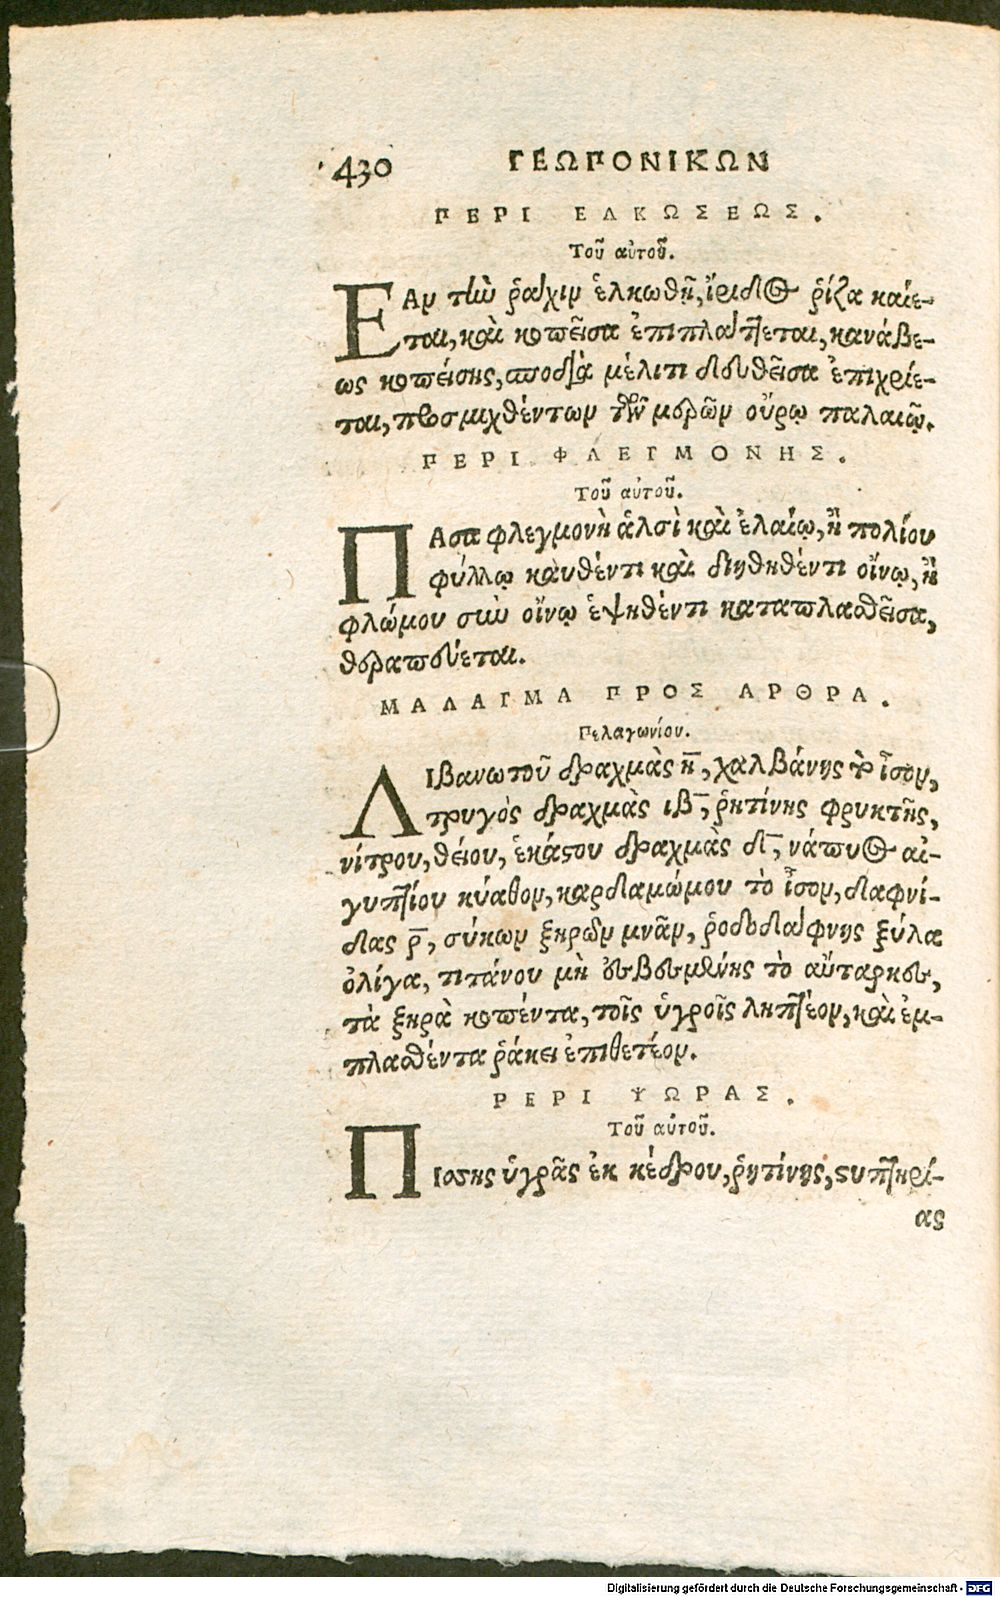 430 ΓΕΩΠΟΝΙΚΩΝ
ΠΕΡΙ ΕΛΚΩΣΕΩΣ.
Τοῦ αὐτοῦ.
ΕΑν τὴν ῥάχιν ἑλκωθῇ, ἴριδος ῥίζα καίε-
ται, καὶ κοπεῖσα ἐπιπλάττεται, κανάβε-
ως κοπείσης, σποδιὰ μέλιτι δευθεῖσα ἐπιχρίε-
ται, προσμιχθέντων τῶν μερῶν οὔρῳ παλαιῷ.
ΠΕΡΙ ΦΛΕΓΜΟΝΗΣ.
Τοῦ αὐτοῦ.
ΠΑσα φλεγμονὴ ἁλσὶ καὶ ἐλαίῳ, ἢ πολίου
φύλλῳ καυθέντι καὶ διηθηθέντι οἴνῳ, ἢ
φλώμου σὺν οἴνῳ ἑψηθέντι καταπλασθεῖσα,
θεραπεύεται.
ΜΑΛΑΓΜΑ ΠΡΟΣ ΑΡΘΡΑ.
Πελαγωνίου.
ΛΙβανωτοῦ δραχμὰς η̅, χαλβάνης τὸ ἶσον,
τρυγὸς δραχμὰς ιβ̅, ῥητίνης φρυκτῆς,
νίτρου, θείου, ἑκάστου δραχμὰς δ̅, νάπυος αἰ-
γυπτίου κύαθον, καρδαμώμου τὸ ἶσον, δαφνί-
δας ρ̅, σύκων ξηρῶν μνᾶν, ῥοδοδάφνης ξύλα
ὀλίγα, τιτάνου μὴ σεβεσμένης τὸ αὔταρκες,
τὰ ξηρὰ κοπέντα, τοῖς ὑγροῖς ληπτέον, καὶ ἐμ-
πλασθέντα ῥάκει ἐπιθετέον.
ΡΕΡΙ ΨΩΡΑΣ.
Τοῦ αὐτοῦ.
ΠΙσσης ὑγρᾶς ἐκ κέδρου, ῥητίνης, στυπτηρί-
ας
Digitalisierung gefördert durch die Deutsche Forschungsgemeinschaft - DFG